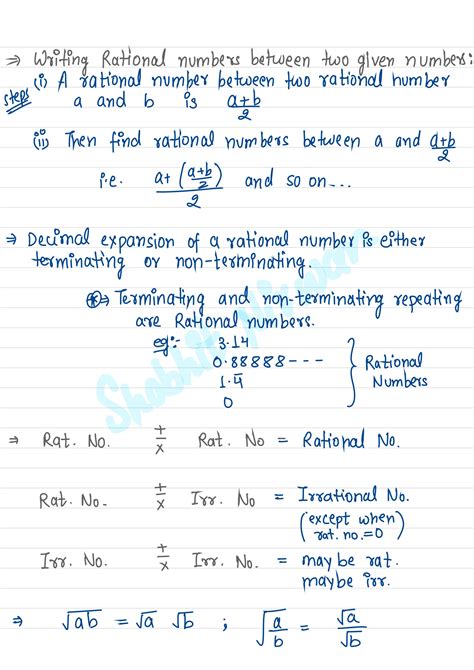 ⇒ Writing Rational numbers between two given numbers:
steps (i) A rational number between two rational number
a and b is (a+b)/2
(ii) Then find rational numbers between a and (a+b)/2
i.e. (a+((a+b)/2))/2 and so on...
⇒ Decimal expansion of a rational number is either
terminating or non-terminating.
⊛→ Terminating and non-terminating repeating
are Rational numbers.
eg:- 3.14
0.88888---
1.4̄
0
} Rational
Numbers
⇒ Rat. No. +/× Rat. No = Rational No.
Rat. No. +/× Irr. No = Irrational No.
(except when
rat. no.=0)
Irr. No. +/× Irr. No. = maybe rat.
maybe irr.
⇒ √ab = √a √b ; √(a/b) = √a/√b